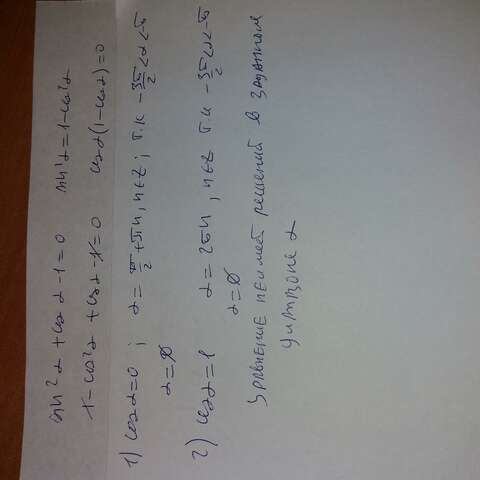 sin²α + cos α - 1 = 0    sin²α = 1 - cos²α
1 - cos²α + cos α - 1 = 0    cos α (1 - cos α) = 0
1) cos α = 0 ; α = π/2 + πn, n∈Z ; т.к -3π/2 < α < -π
α = ∅
2) cos α = 1    α = 2πn, n∈Z т.к -3π/2 < α < -π
α = ∅
Уравнение не имеет решений в заданном
диапазоне α